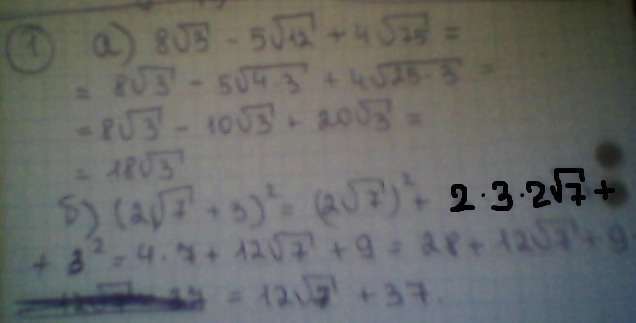 1 а) 8√3 - 5√12 + 4√75 =
= 8√3 - 5√4·3 + 4√25·3 =
= 8√3 - 10√3 + 20√3 =
= 18√3
б) (2√7 + 3)² = (2√7)² + 2·3·2√7 +
+ 3² = 4·7 + 12√7 + 9 = 28 + 12√7 + 9
= 12√7 + 37.